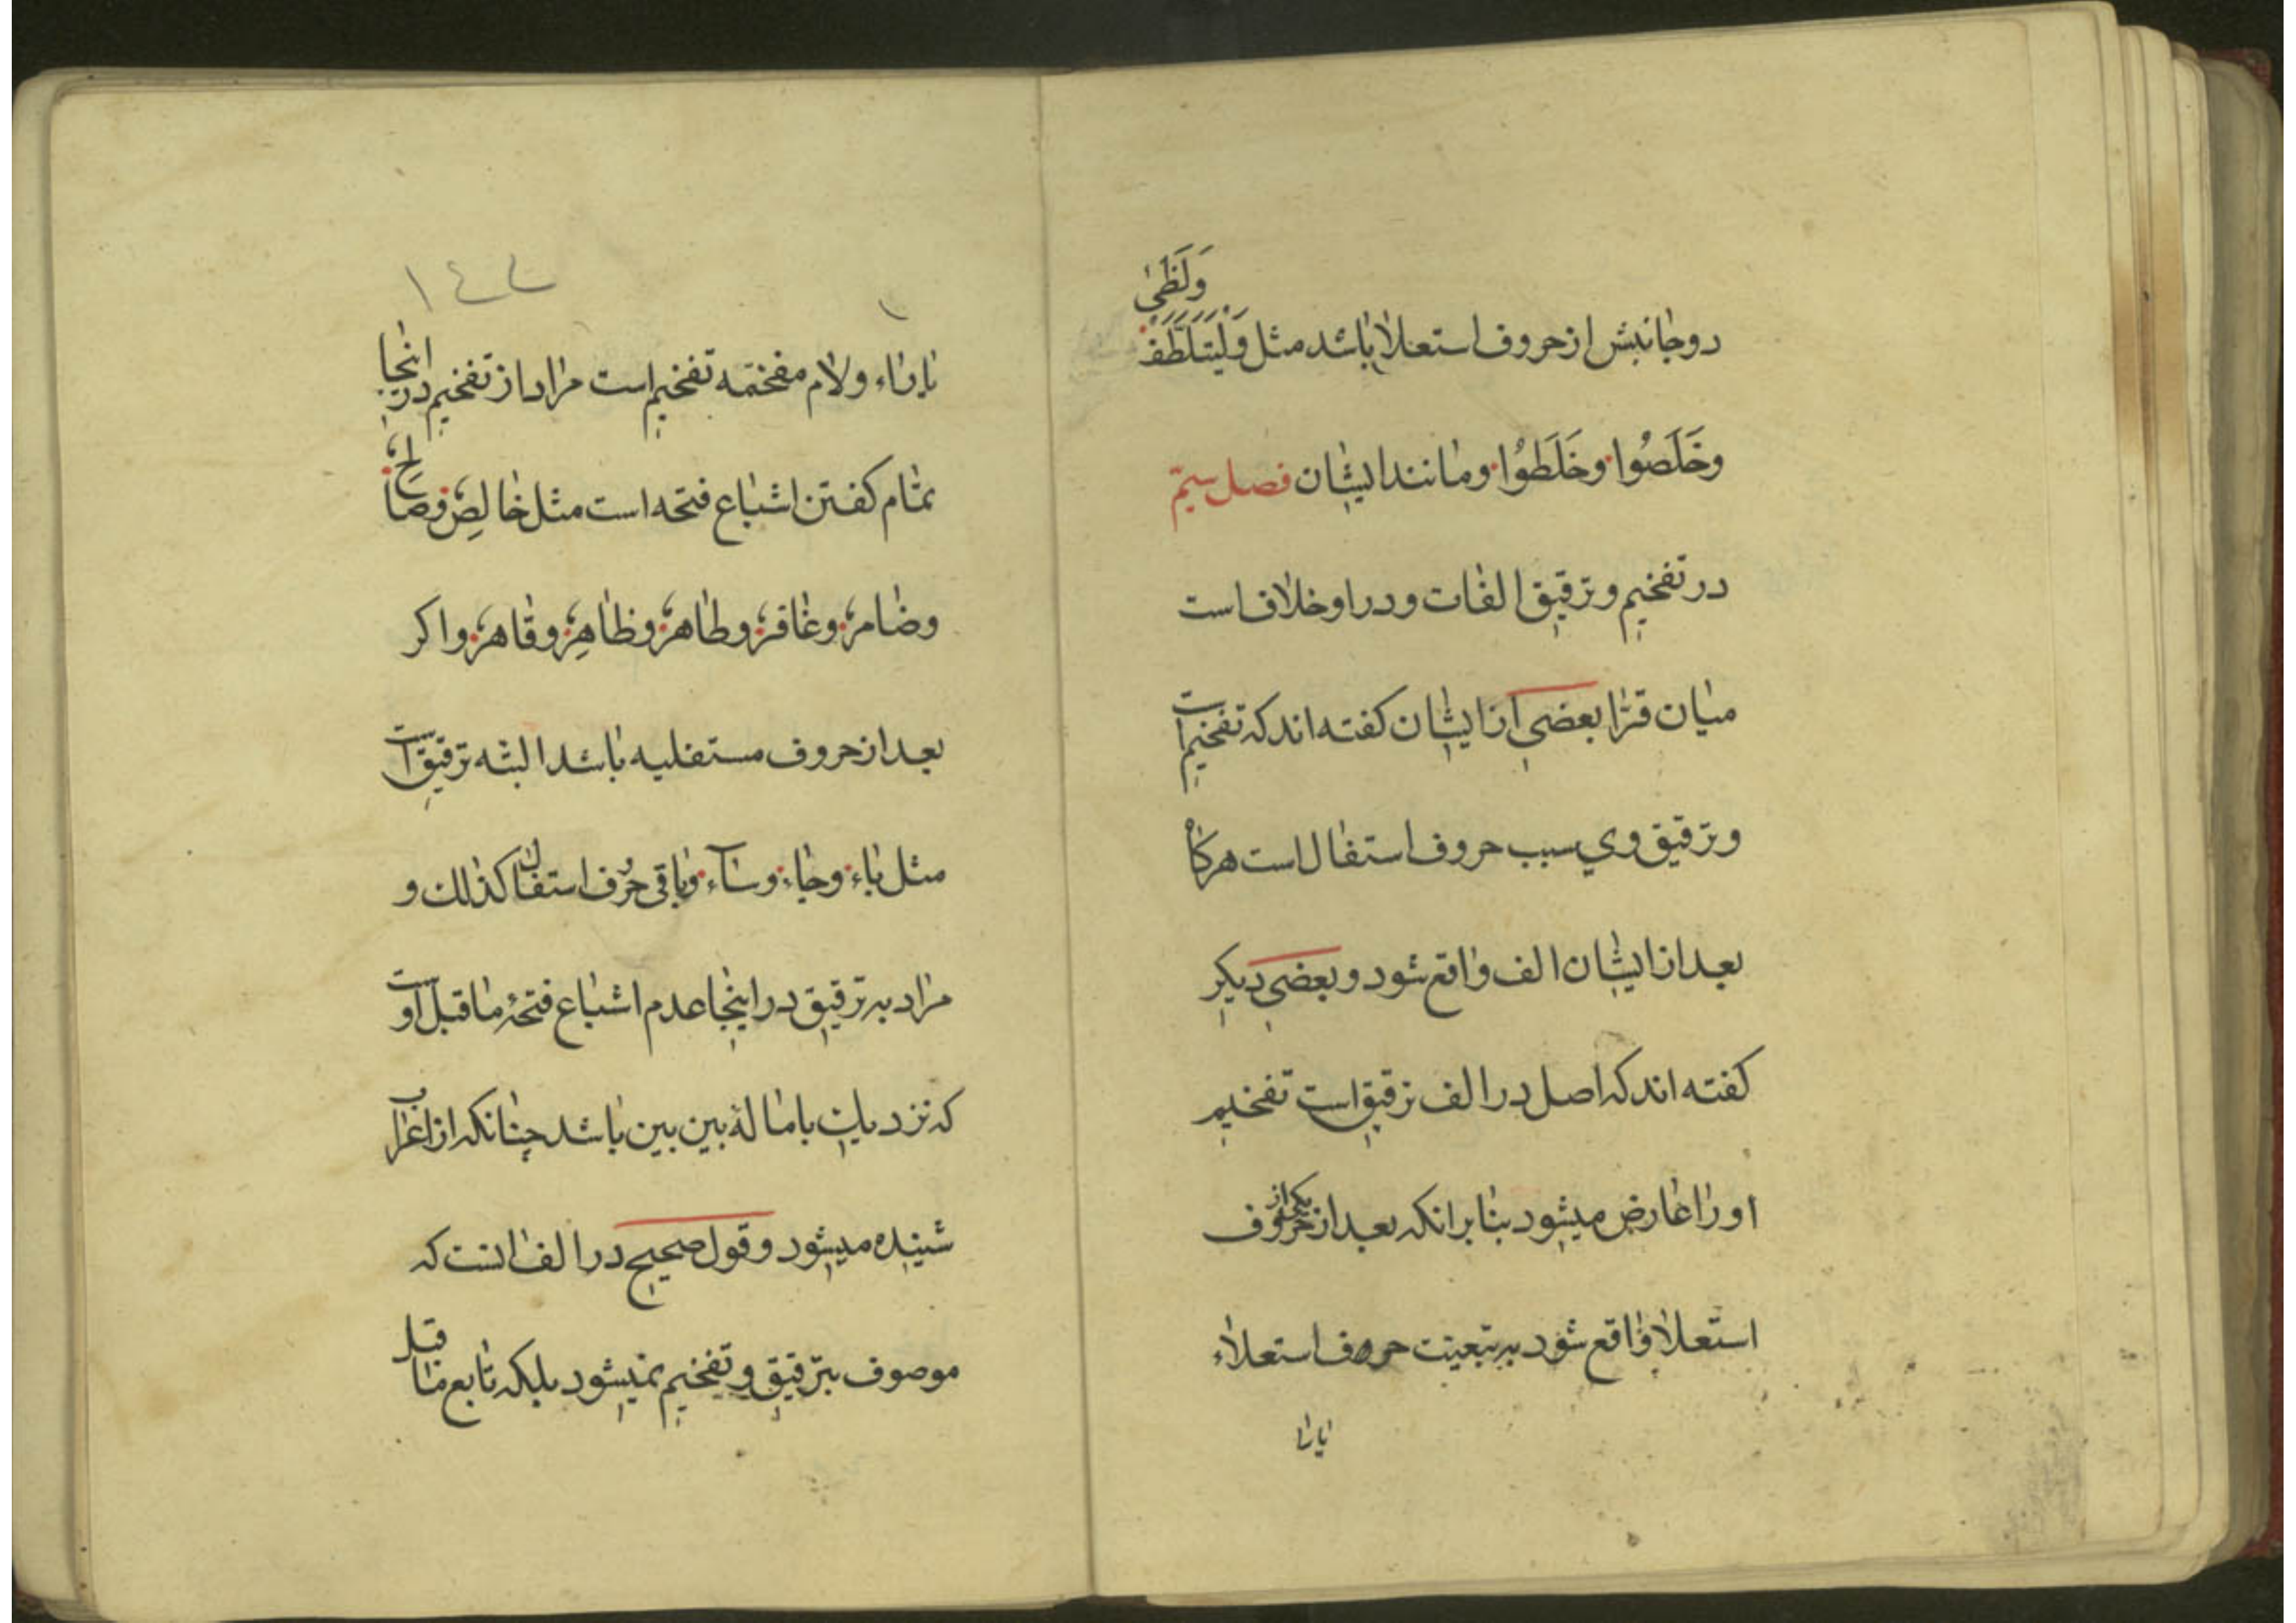 دوجانبش از حروف استعلا باشد مثل وَلْيَتَلَطَّفْ وَلَظٰى
وخَلَصُوا وخَلَطُوا ومانند ایشان فصل سیّم
در تفخیم وترقیق الفات ودر او خلاف است
میان قرّا بعضی از ایشان کفته اند که تفخیم است
وترقیق وی سبب حروف استفال است هرکاه
بعد از ایشان الف واقع شود وبعضی دیکر
کفته اند که اصل در الف ترقیق است تفخیم
اورا عارض میشود بنابرانکه بعد از یکی از حروف
استعلا واقع شود به تبعیت حروف استعلاء
یارا
١٤٤
یاراء ولام مفخمّه تفخیم است مراد از تفخیم دراینجا
تمام کفتن اشباع فتحه است مثل خالِص وصالِح
وضامر وغافر وطاهر وظاهِر وقاهر واکر
بعد از حروف مستفلیه باشد البته ترقیق است
مثل باء وحاء وتاء وباقی حروف استفال کذلك و
مراد به ترقیق در اینجا عدم اشباع فتحهٔ ماقبل اوست
که نزدیك بامالهٔ بین بین باشد چنانکه از اعراب
شنیده میشود وقول صحیح در الف انست که
موصوف بترقیق وتفخیم نمیشود بلکه تابع ماقبل